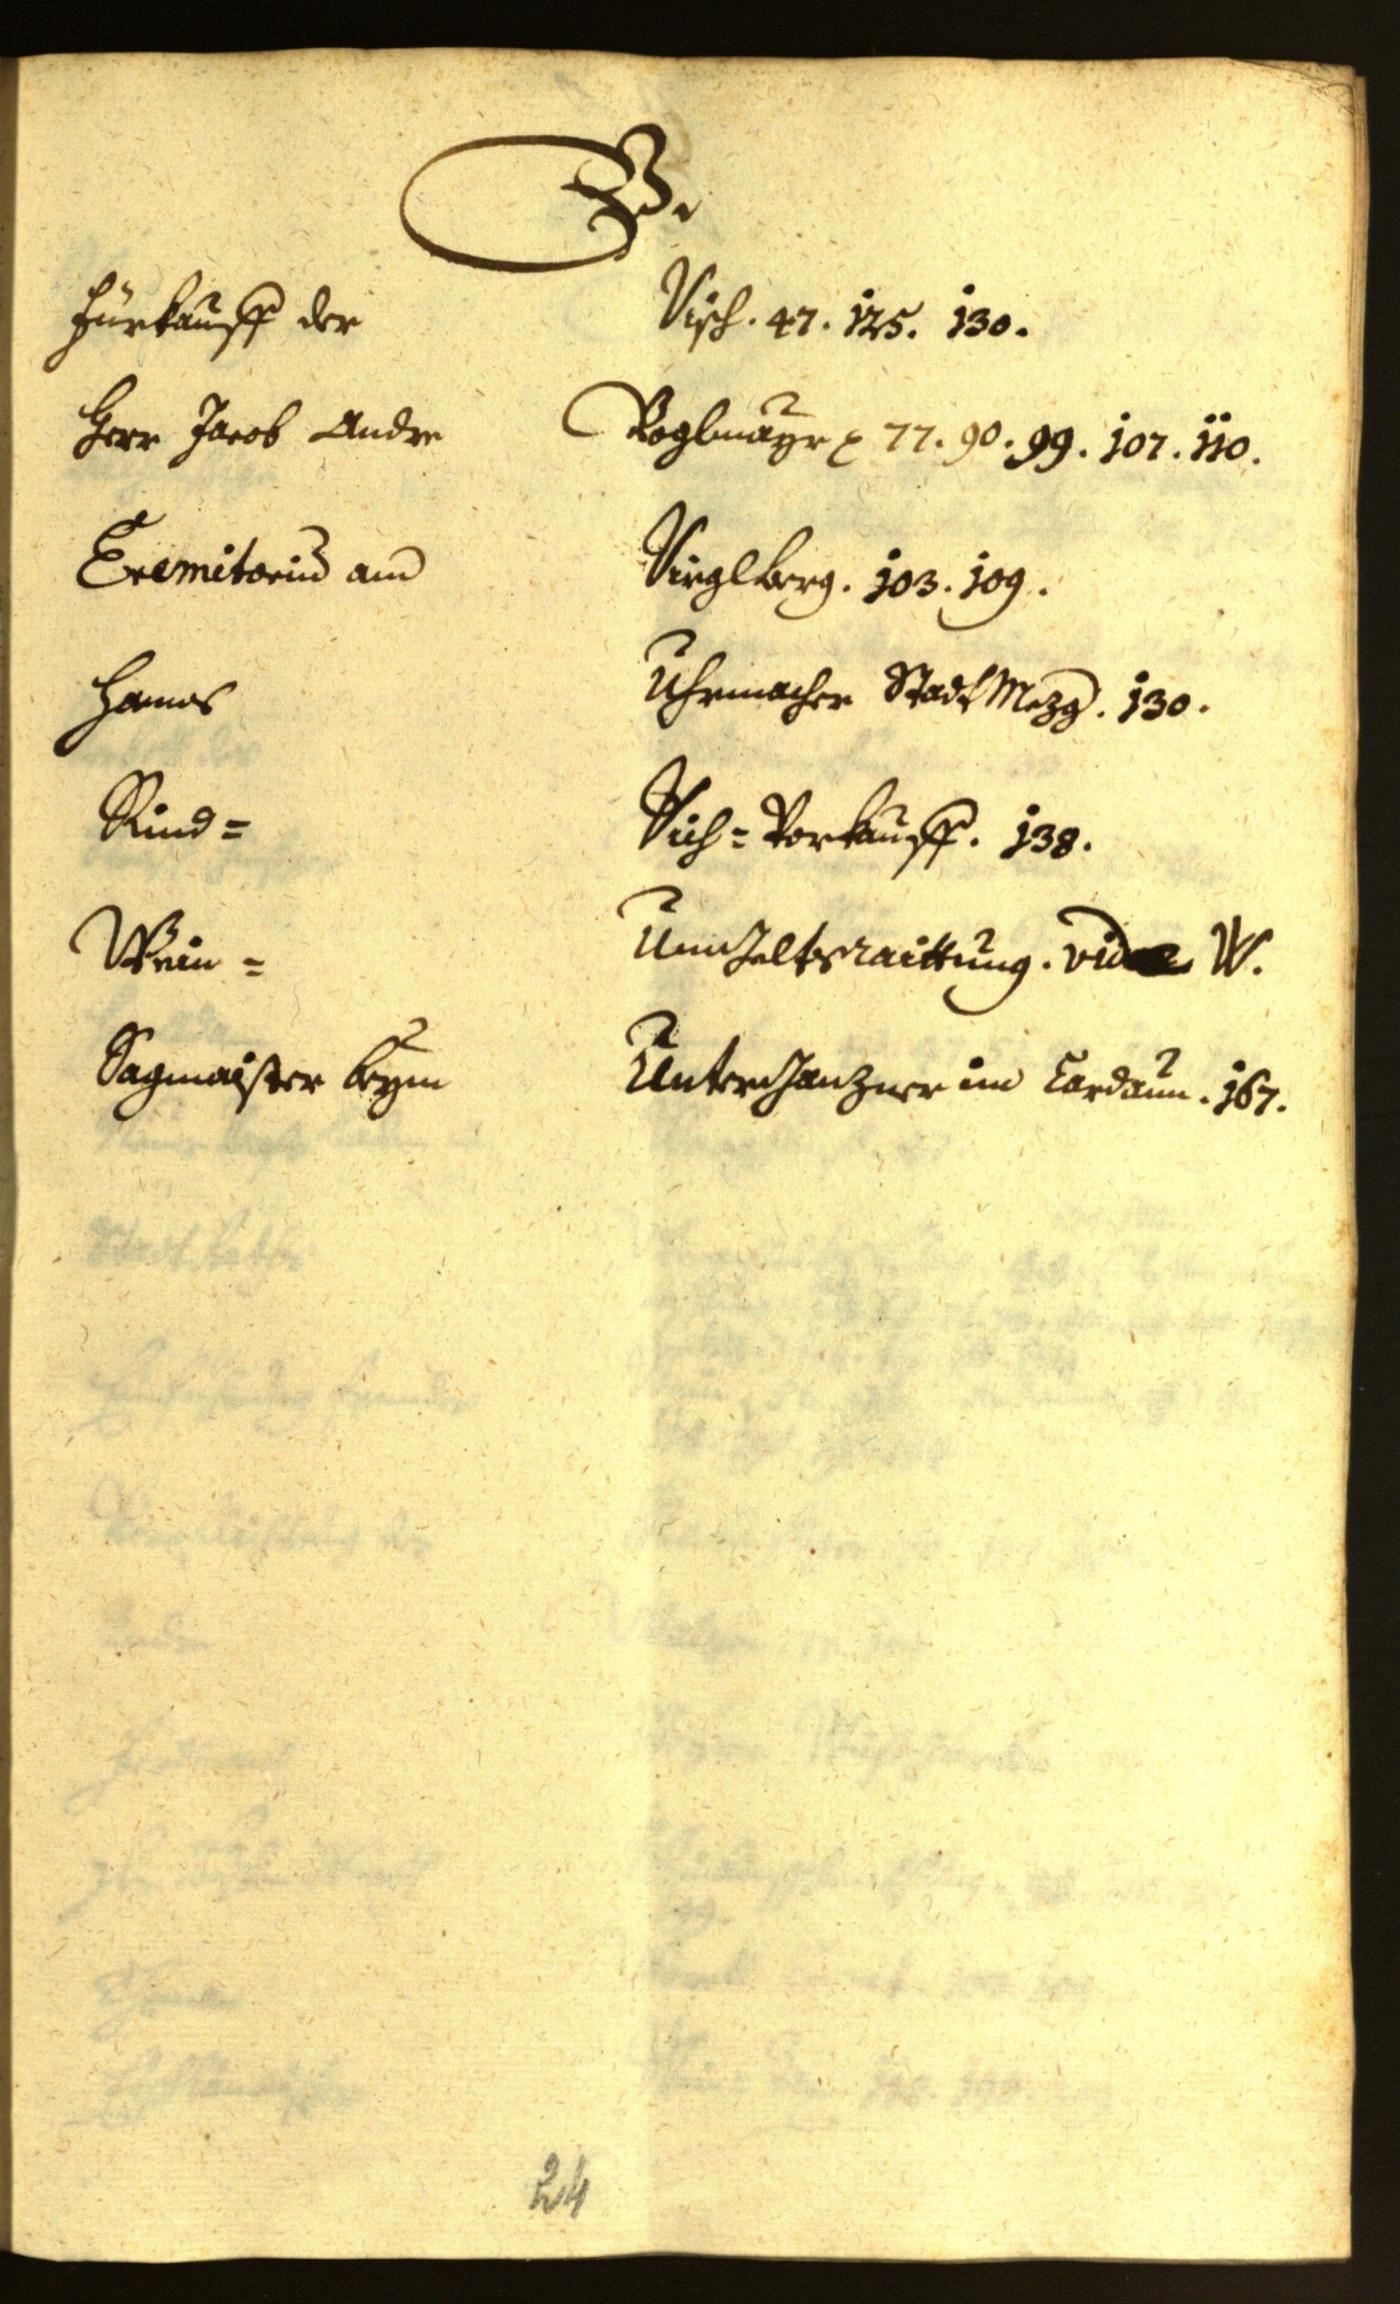 V.
Fürkauff der Visch. 47. 125. 130.
Herr Jacob Andre Voglmayr p 77. 90. 99. 107. 110.
Eremitoriu am Virglberg. 103. 109.
Hannes Uhrmacher Stadt Mezg. 130.
Rind= Vich= Vorkauff. 138.
Wein= Umbgeltsraittung. vide W.
Sagmaister beym Unterganzner im Cardaun. 167.
24